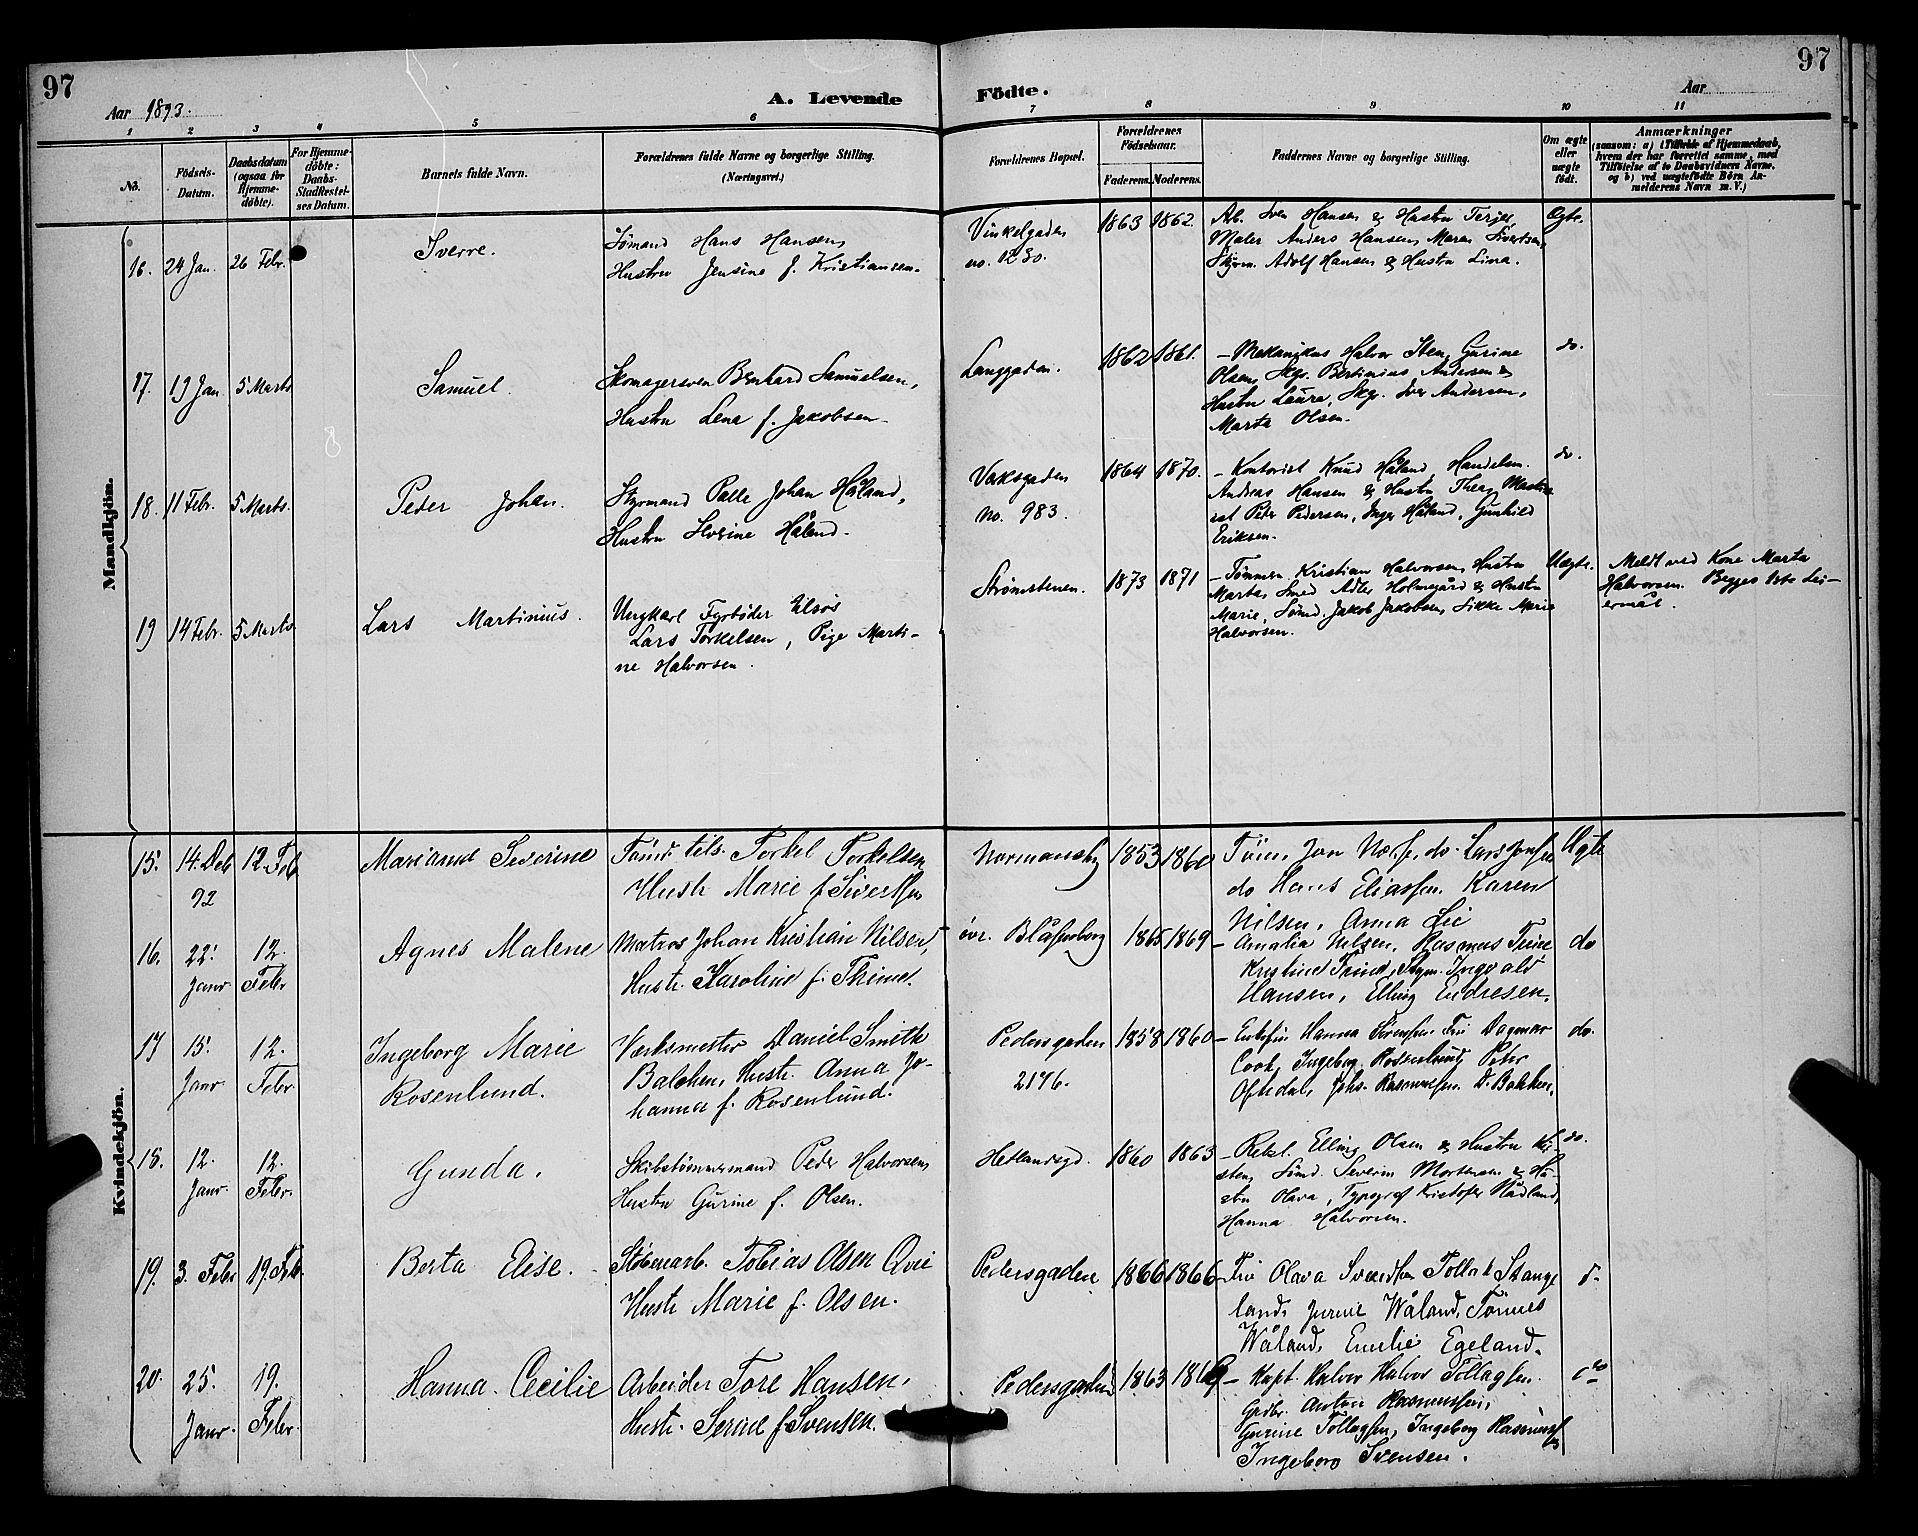 97
Aar 1893.
A. Levende
Födte.
Aar
97
1 2 3 4 5 6 7 8 9 10 11
No.
Födsels-
Datum.
Daabsdatum
(ogsaa for
Hjemme-
döbte).
For Hjemme-
döbte:
Daabs-
Stadfestel-
ses Datum.
Barnets fulde Navn.
Forældrenes fulde Navne og borgerlige Stilling.
(Næringsvei.)
Forældrenes Bopæl.
Forældrenes
Födselsaar.
Faderens. Moderens.
Faddernes Navne og borgerlige Stilling.
Om ægte
eller
uægte
født.
Anmærkninger
(saasom: a) i Tilfælde af Hjemmedaab,
hvem der har forrettet samme, med
Tilföielse af to Daabsvidners Navne,
og b) ved uægtefödte Börn An-
melderens Navn m. V.)
Mandkjön.
16. 24 Jan. 26 Febr. Sverre.
Sømand Hans Hansen,
Hustru Jensine f. Kristiansen.
Vinkelgaden
no. 1230.
1863 1862.
Ab. Sven Hansen & Hustru Terjer,
Maler Anders Hansen, Maren Sivertsen,
Styrm. Adolf Hansen & Hustru Lina.
Ægte.
17. 19 Jan. 5 Marts Samuel.
Skomagersven Bernhard Samuelsen,
Hustru Lena f. Jakobsen.
Langgaden.
1862 1861.
- Mekanikus Halvor Sten, Gurine
Olsen, Skp. Bertinius Andersen &
Hustru Laura, Skp. Iver Andersen,
Marta Olsen.
do.
18. 11 Febr. 5 Marts. Peder Johan.
Styrmand Palle Johan Håland,
Hustru Severine Håland.
Vaksgaden
no. 983.
1864 1870.
- Kontorist Knud Håland, Handelsm.
Andreas Hansen & Hustru Thea, Maskin
ist Peder Pedersen, Inger Håland, Gunhild
Eriksen.
do.
19 14 Febr. 5 Marts Lars Martinius.
Ungkarl Fyrbøder Elias
Lars Torkelsen, Pige Marti-
ne Halvorsen.
Strømstenen.
1873 1871
- Tømmerm. Kristian Halvorsen, Hustru
Marta, Smed Adler Holmegård & Hustru
Marie, Sømd. Jakob Jakobsen, Sikke Marie
Halvorsen.
Uægte.
Meldt ved Kone Marta
Halvorsen. Begges 1ste Lei-
ermål.
Kvindekjön.
15. 14. Deb
92
12. Feb
Mariane Severine
Tømd. tils. Torkel Torkelsen
Hustr. Marie f. Sivertsen
Normansby 1853 1860
Tøm. Jon Næss, do. Lars Jonsen
do Hans Eliassen. Karen
Nilsen, Anna Lie
Ægte
16. 22.
Janr
12.
Febr
Agnes Malene
Matros Johan Kristian Nilsen,
Hustr. Karoline f. Thime.
övr. Blåsenborg 1865 1869
- Amalia Nilsen, Rasmus Time
Kristine Time, Skpm. Ingvald
Hansen, Elling Endresen.
do
17 15.
Janr
12.
Febr
Ingeborg Marie
Rosenlund.
Værksmester Daniel Smith
Balchen, Hustr. Anna Jo-
hanna f. Rosenlund.
Pedersgaden
2146.
1858 1860
- Enkefru Hanna Sivensen. Fru Dagmar
Cook, Ingeborg Rosenlund, Peter
Oftedal, Johs. Rasmussen. D. Bakken.
do.
18. 12.
Janr.
12.
Febr.
Gunda.
Skibstømmermand Peder Halvorsen,
Hustru Gurine f. Olsen.
Hetlandsgd. 1860 1863
- Rebsl. Elling Olsen & Hustru Kri-
stine, Sømd. Severin Mortensen & Hu-
stru Olava, Typograf Kristofer Nådland,
Hanna Halvorsen.
do.
19. 3. Febr 19. Feb. Berta Elise.
Støberiarb. Tobias Olsen Qvie
Hustr. Marie f. Olsen.
Pedersgaden 1866 1866
- Fru Olava Svendsen Tollak Stange
land, Jurine Wåland, Tønnes
Wåland, Emelie Egeland.
d-
20. 25.
Janr.
19.
Febr.
Hanna Cecilie
Arbeider Tore Hansen,
Hustr. Serine f. Svensen.
Pedersgaden 1863 1869
- Kapt. Halvor Halvor Tollagsen.
Grdbr. Anton Rasmussen,
Gurine Tollagsen, Ingeborg Rasmussen
Ingeborg Svensen.
do